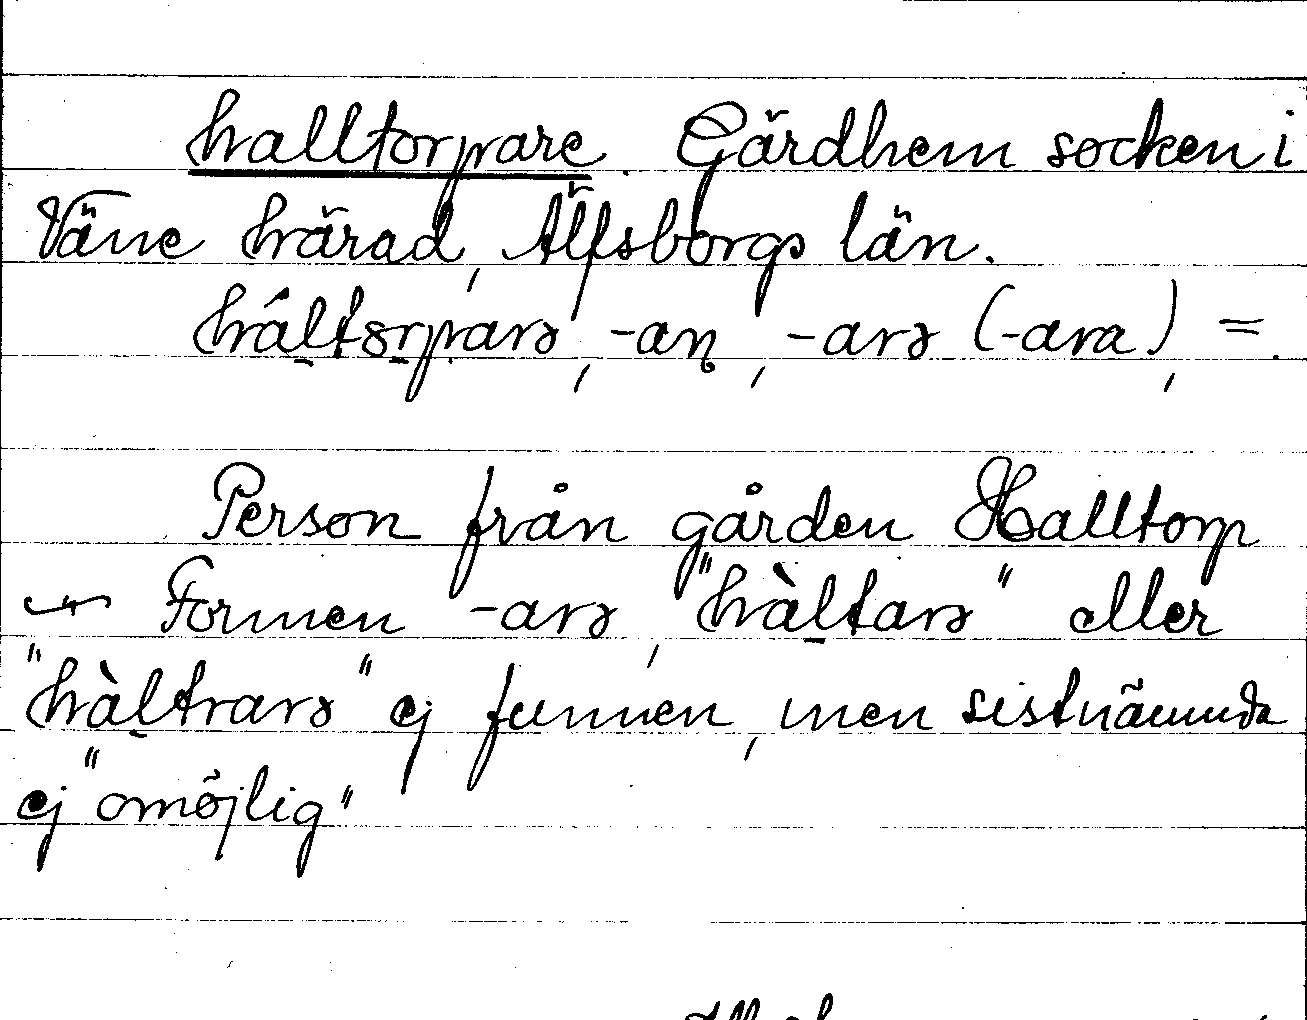 halltorpare. Gärdhem socken i
Väne härad, Älfsborgs län.
hál̠tɷrparə, -aɳ, -arə (-ara), =.
Person från gården Halltorp
Formen -arə, "hàl̠tarə" eller
"hàl̠trarə" ej funnen, men sistnämnda
ej "omöjlig"